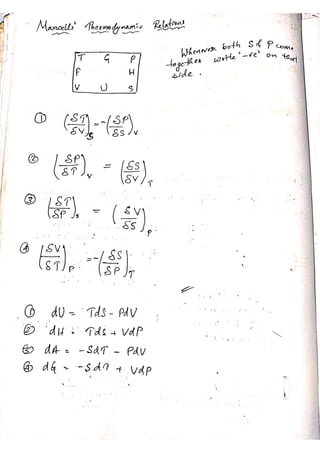 Maxwells' Thermodynamic Relations
T G P
F H
V U S
Whenever both S & P come
together write '-ve' on that
side.
① (δT/δV)S = -(δP/δS)V
② (δP/δT)V = (δS/δV)T
③ (δT/δP)S = (δV/δS)P
④ (δV/δT)P = -(δS/δP)T
① dU = Tds - PdV
② dH = Tds + VdP
③ dA = -SdT - PdV
④ dG = -SdT + VdP